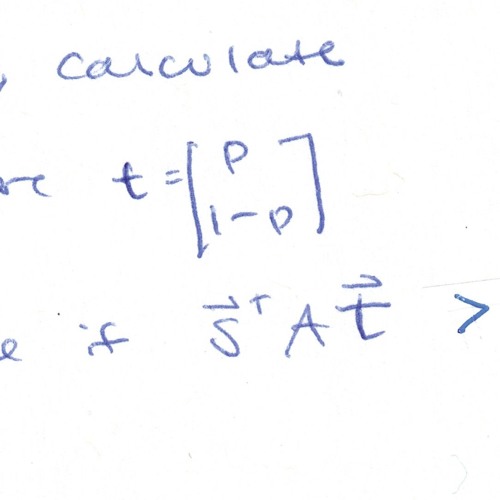 , calculate
re t = [ p
1-p ]
e if s⃗ᵀ A t⃗ >